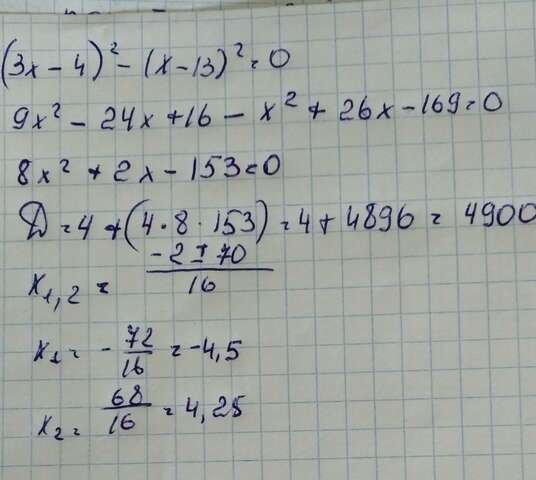 (3x - 4)² - (x - 13)² = 0
9x² - 24x + 16 - x² + 26x - 169 = 0
8x² + 2x - 153 = 0
D = 4 + (4 · 8 · 153) = 4 + 4896 = 4900
x₁,₂ = (-2 ± 70)/16
x₁ = -72/16 = -4,5
x₂ = 68/16 = 4,25